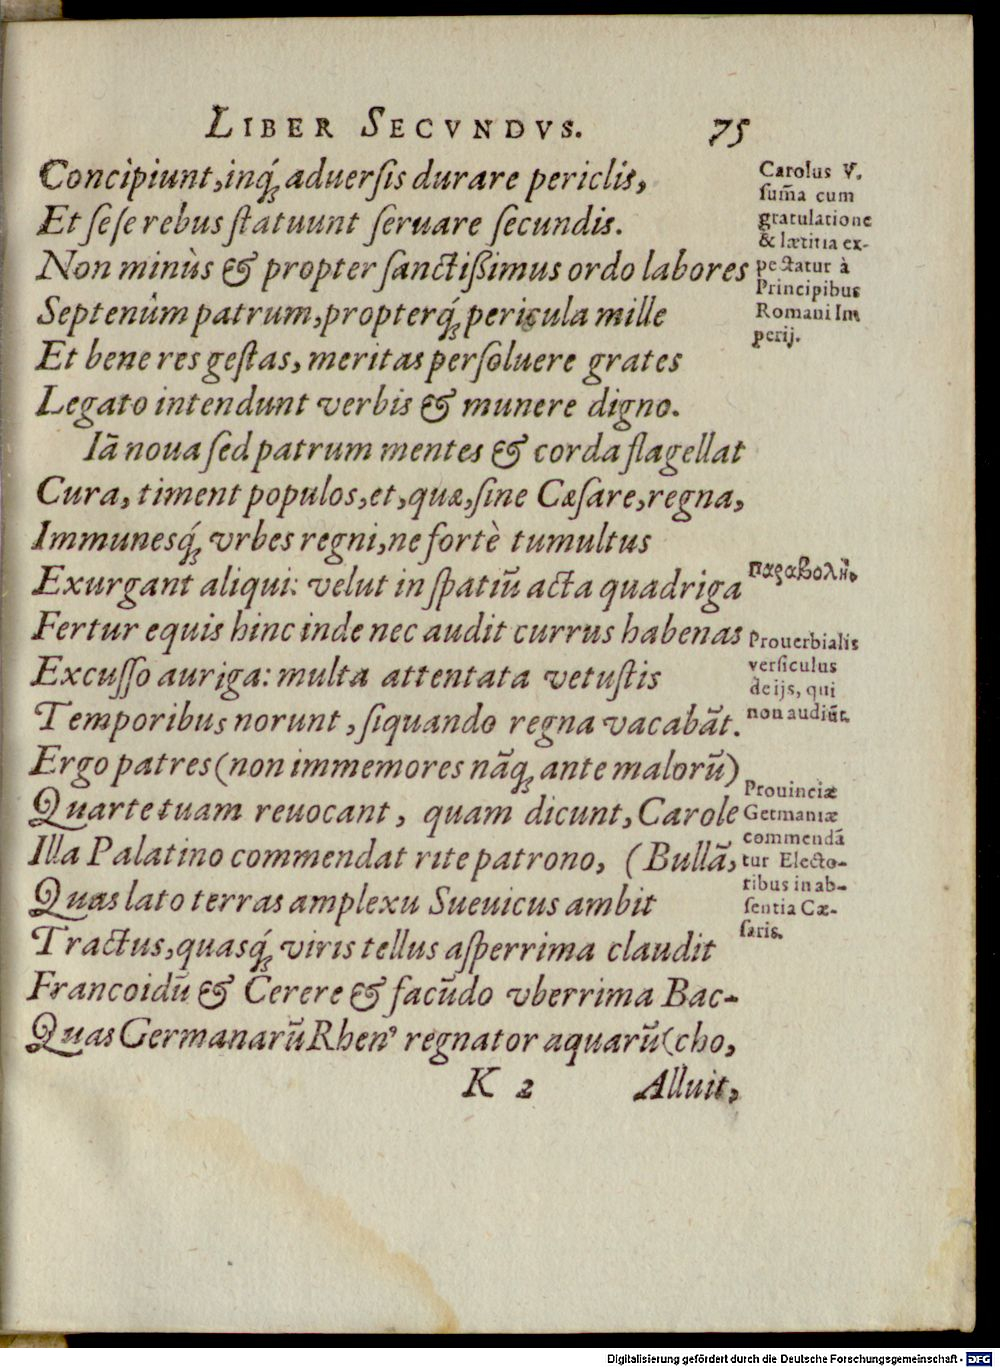 LIBER SECVNDVS. 75
Concipiunt, inq́ꝫ aduerſis durare periclis,
Et ſeſe rebus ſtatuunt ſeruare ſecundis.
Non minùs & propter ſanctißimus ordo labores
Septenûm patrum, propterq́ꝫ pericula mille
Et bene res geſtas, meritas perſoluere grates
Legato intendunt verbis & munere digno.
Iã noua ſed patrum mentes & corda flagellat
Cura, timent populos, et, quæ, ſine Cæſare, regna,
Immunesq́ꝫ vrbes regni, ne fortè tumultus
Exurgant aliqui: velut in ſpatiũ acta quadriga
Fertur equis hinc inde nec audit currus habenas
Excuſſo auriga: multa attentata vetuſtis
Temporibus norunt, ſiquando regna vacabãt.
Ergo patres (non immemores nãqꝫ ante malorũ)
Quarte tuam reuocant, quam dicunt, Carole
Illa Palatino commendat rite patrono, (Bullã,
Quas lato terras amplexu Sueuicus ambit
Tractus, quasq́ꝫ viris tellus aſperrima claudit
Francoidũ & Cerere & facũdo vberrima Bac-
Quas Germanarũ Rhenꝰ regnator aquarũ (cho,
K 2 Alluit,
Carolus V.
ſum̃a cum
gratulatione
& lætitia ex-
pectatur à
Principibus
Romani Im
perij.
παραβολὴ.
Prouerbialis
verſiculus
de ijs, qui
non audiũt.
Prouinciæ
Germaniæ
commendã
tur Electo-
ribus in ab-
ſentia Cæ-
ſaris.
Digitalisierung gefördert durch die Deutsche Forschungsgemeinschaft - DFG